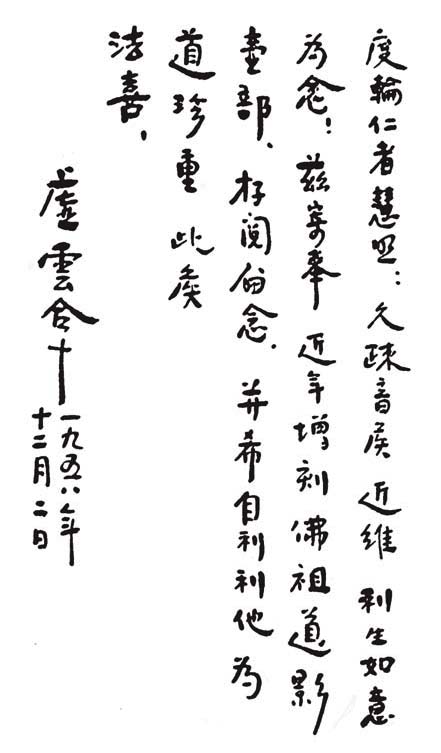 度輪仁者慧照：久疎音候 近維 利生如意
為念！茲寄奉 近年增刻佛祖道影
壹部、存閱念、并希自利利他 為
道珍重 此候
法喜，
虛雲合十
一九五八年
十二月二日